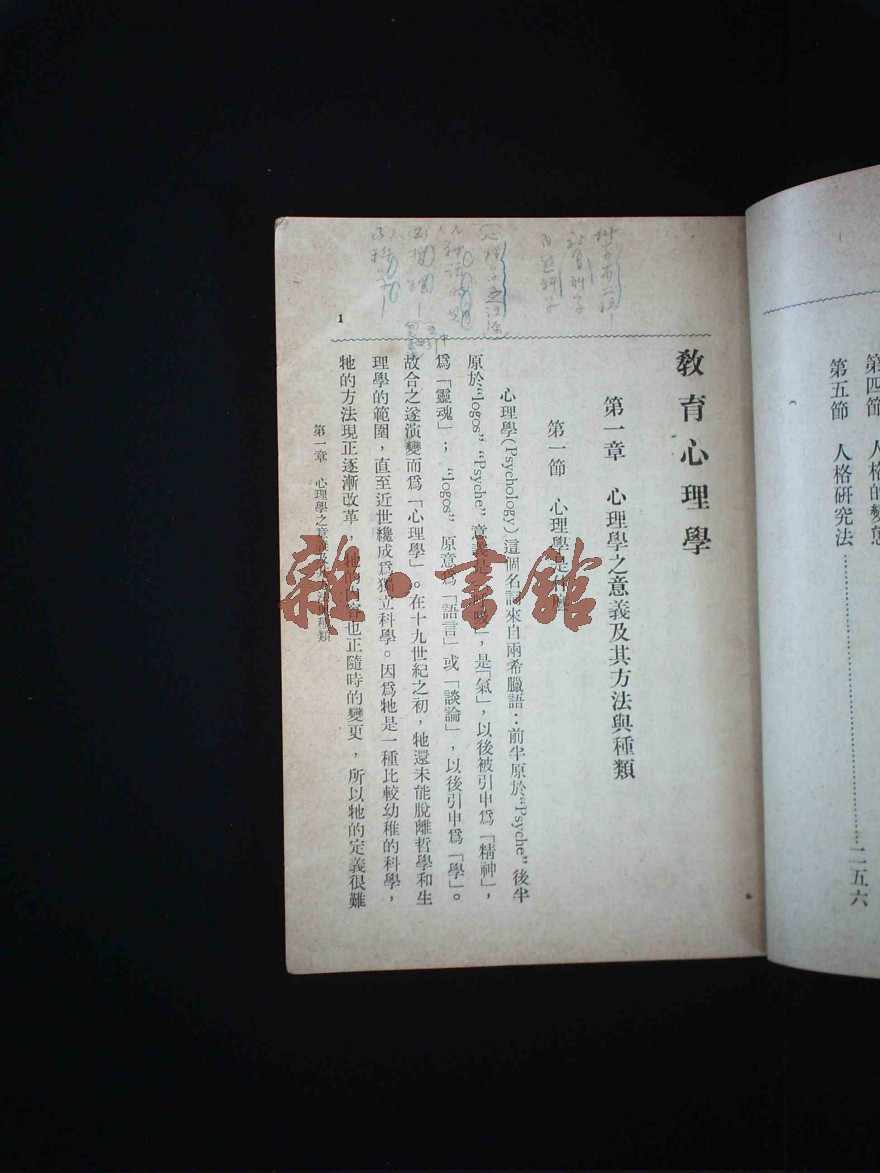 第四節 人格的變態
第五節 人格研究法……二五六
教育心理學
第一章 心理學之意義及其方法與種類
第一節 心理學是什麼
心理學(Psychology)這個名詞來自兩希臘語：前半原於“Psyche”後半
原於“logos”“Psyche”意義是「呼吸」，是「氣」，以後被引申爲「精神」，
爲「靈魂」；“logos”原意爲「語言」或「談論」，以後引申爲「學」。
故合之遂演變而爲「心理學」。在十九世紀之初，牠還未能脫離哲學和生
理學的範圍，直至近世纔成爲獨立科學。因爲牠是一種比較幼稚的科學，
牠的方法現正逐漸改革，牠的內容也正隨時的變更，所以牠的定義很難
第一章 心理學之意義及其方法與種類
1
雜·書館